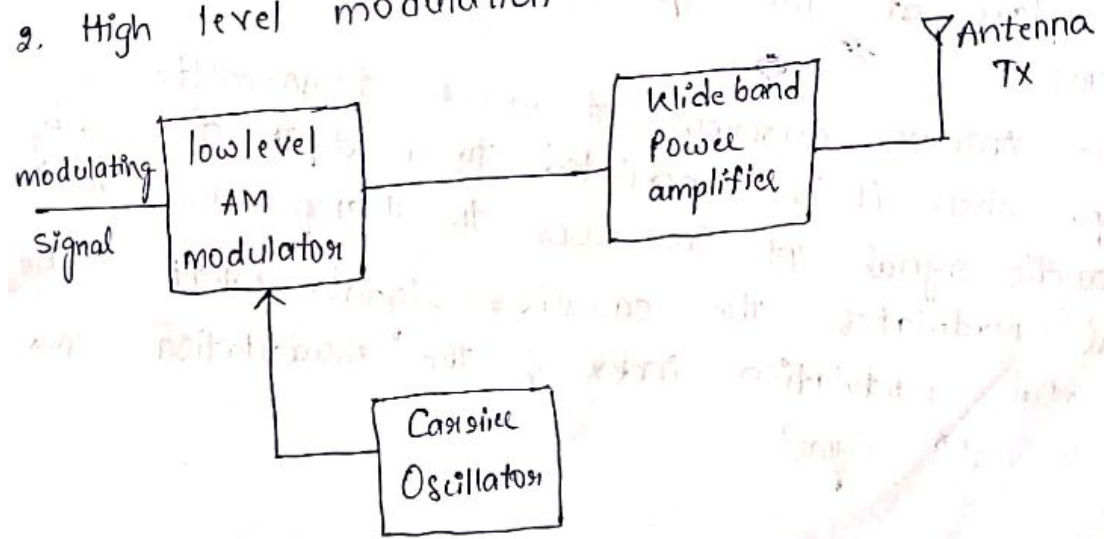 2. High level modulation
Antenna
TX
modulating
signal
low level
AM
modulator
Wide band
Power
amplifier
Carrier
Oscillator